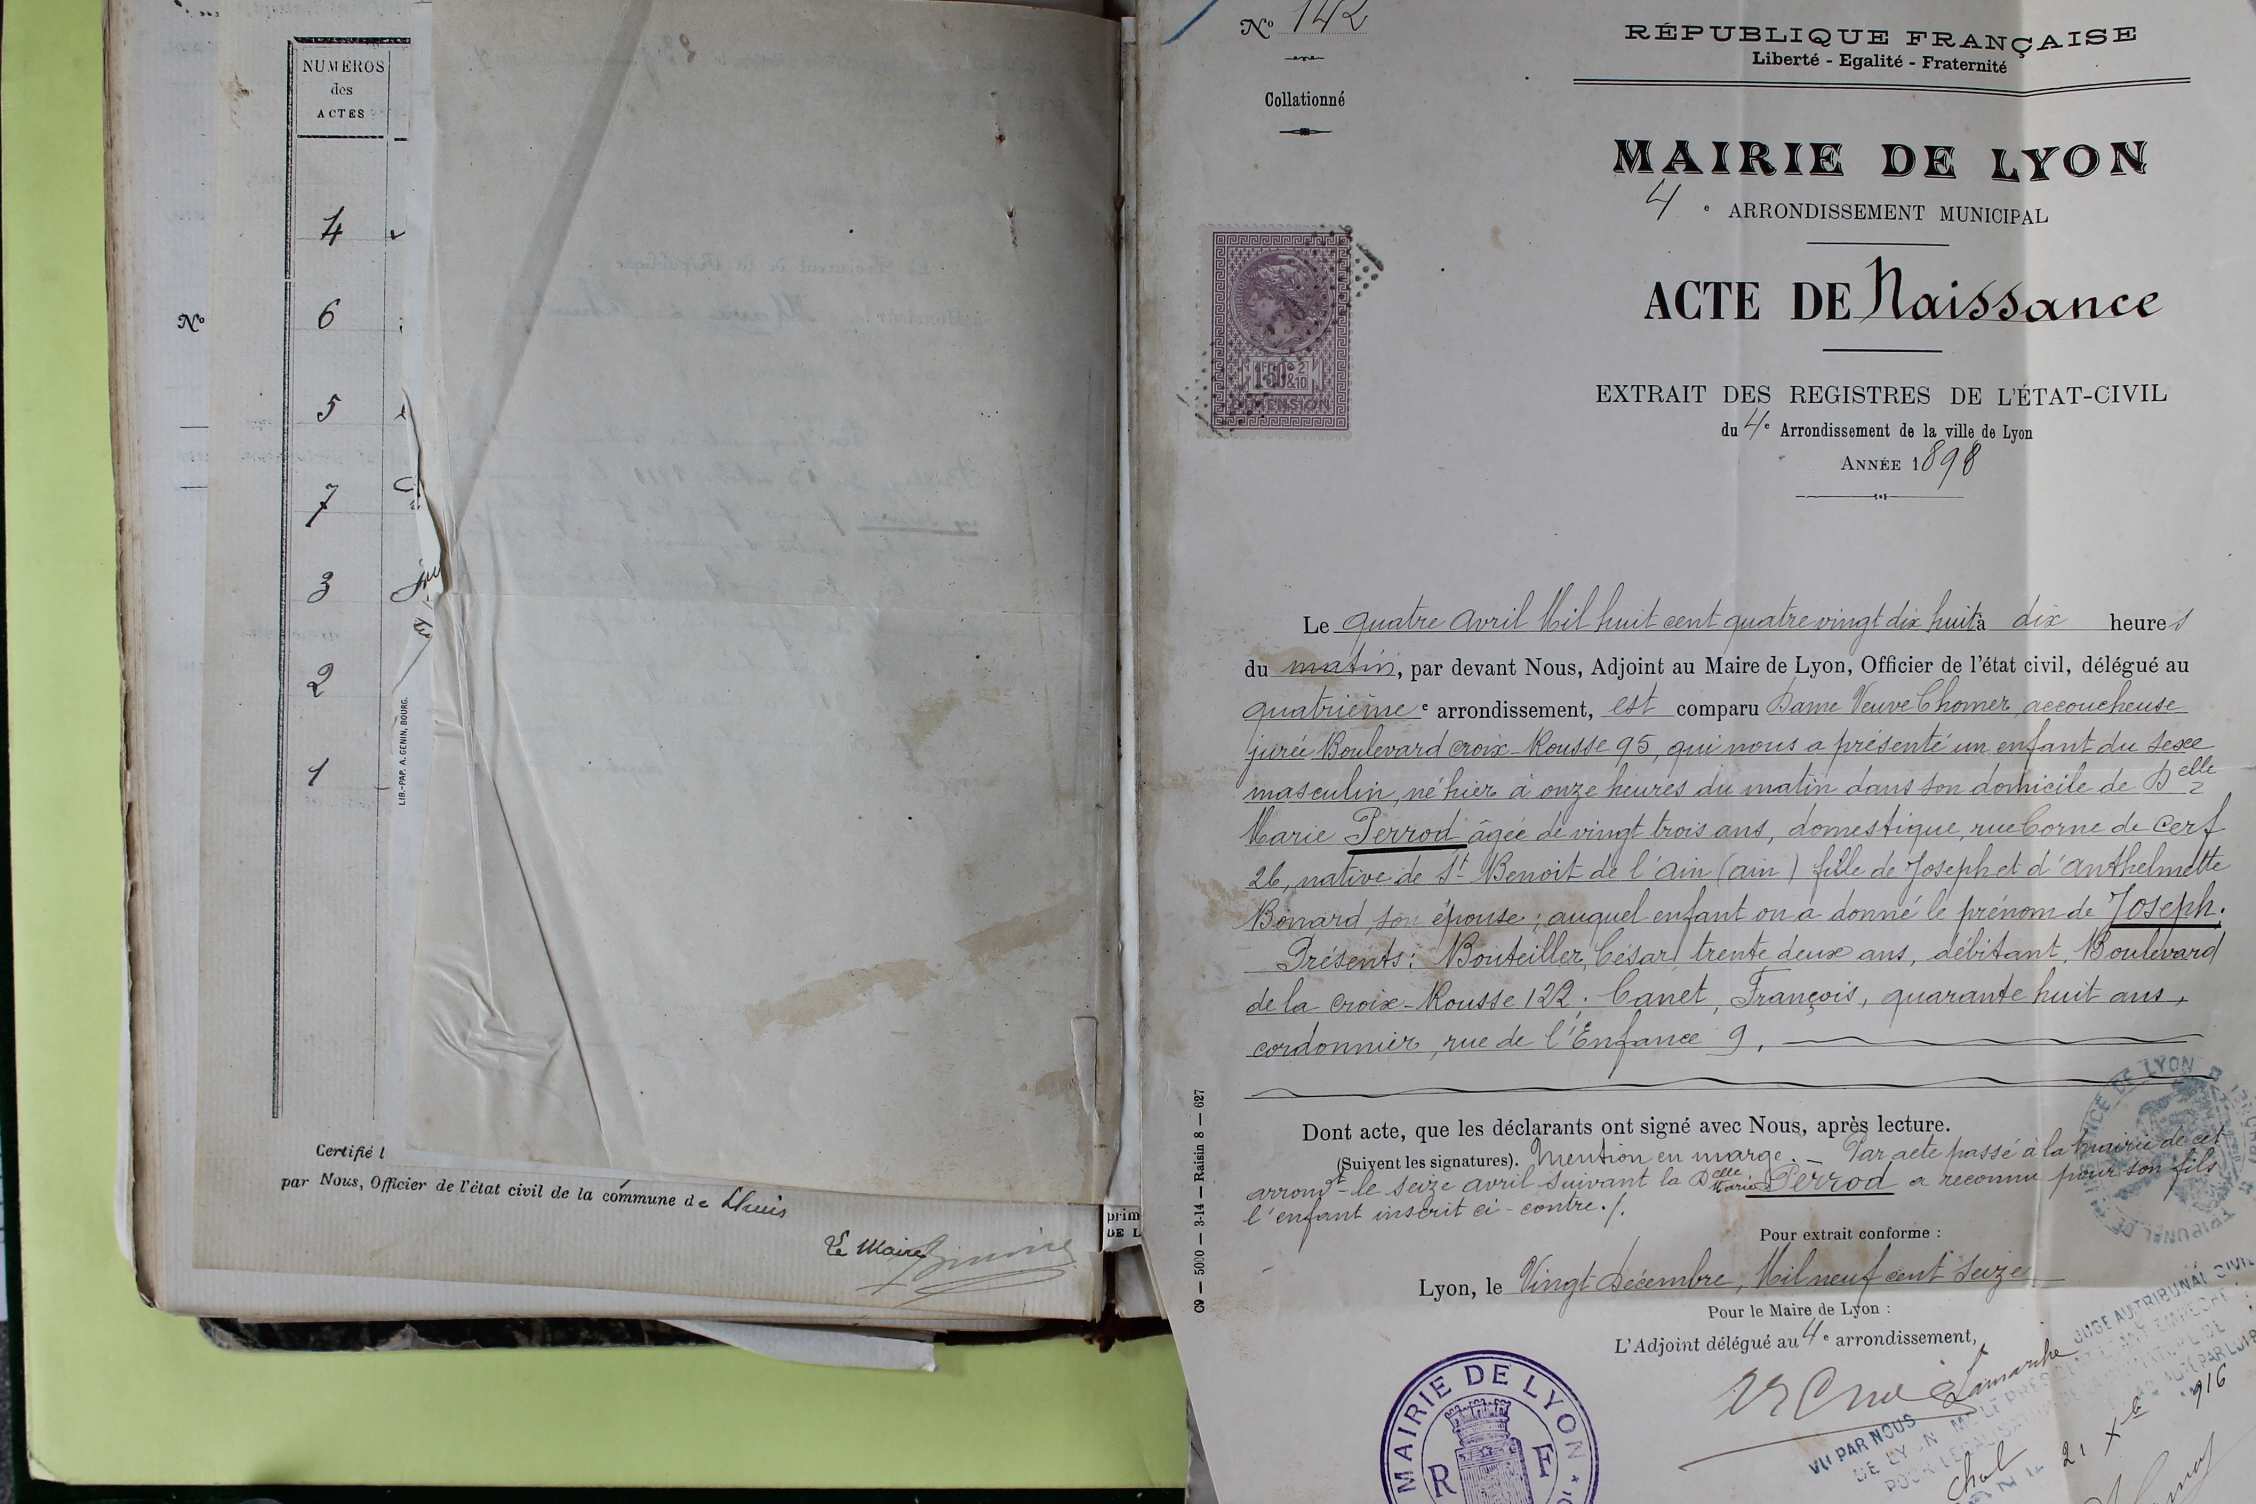 NUMÉROS
des
ACTES
4
6
Nº
5
7
3
2
1
LIB.-PAP. A. GENIN, BOURG.
Certifié
par Nous, Officier de l'état civil de la commune de Lhuis
Le Maire
prim
DE L
Nº 142
Collationné
RÉPUBLIQUE FRANÇAISE
Liberté - Egalité - Fraternité
MAIRIE DE LYON
4 e ARRONDISSEMENT MUNICIPAL
ACTE DE Naissance
1F50c 2/10
DIMENSION
EXTRAIT DES REGISTRES DE L'ÉTAT-CIVIL
du 4e Arrondissement de la ville de Lyon
ANNÉE 1898
Le quatre avril Mil huit cent quatre vingt dix huit à dix heures
du matin, par devant Nous, Adjoint au Maire de Lyon, Officier de l'état civil, délégué au
quatrième e arrondissement, est comparu Dame Veuve Chomer accoucheuse
jurée Boulevard croix-Rousse 95, qui nous a présenté un enfant du sexe
masculin, né hier à onze heures du matin dans son domicile de Delle
Marie Perrod âgée de vingt trois ans, domestique, rue Corne de Cerf
26, native de St Benoit de l'ain (ain) fille de Joseph et d'anthelmette
Bonard, son épouse; auquel enfant on a donné le prénom de Joseph.
Présents: Bouteiller, César, trente deux ans, débitant, Boulevard
de la croix-Rousse 122; Canet, François, quarante huit ans,
cordonnier, rue de l'Enfance 9,
Dont acte, que les déclarants ont signé avec Nous, après lecture.
(Suivent les signatures). Mention en marge. Par acte passé à la mairie de cet
arrondt le seize avril suivant la Delle Marie Perrod a reconnu pour son fils
l'enfant inscrit ci-contre./.
Pour extrait conforme :
Lyon, le Vingt Décembre, Mil neuf cent seize
Pour le Maire de Lyon :
L'Adjoint délégué au 4e arrondissement,
C9 — 5000 — 3-14 — Raisin 8 — 627
MAIRIE DE LYON
R F
DE LYON
TRIBUNAL DE
Lamarche
JUGE AU TRIBUNAL CIVIL
VU PAR NOUS
DE LYON
21 Xbre 1916